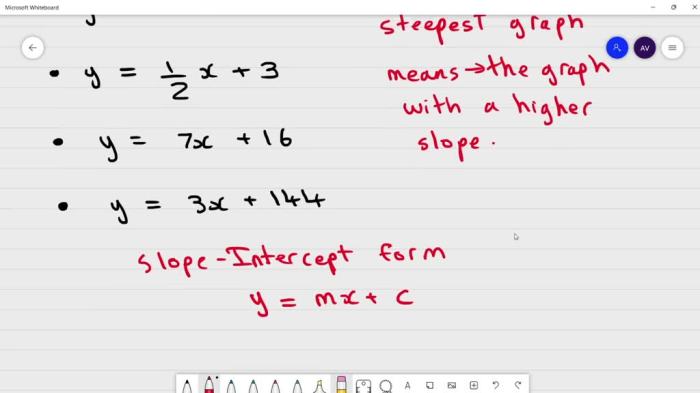 Microsoft Whiteboard
AV
y
• y = 1/2 x + 3
• y = 7x + 16
• y = 3x + 144
steepest graph
means → the graph
with a higher
slope.
slope-Intercept form
y = mx + c
A